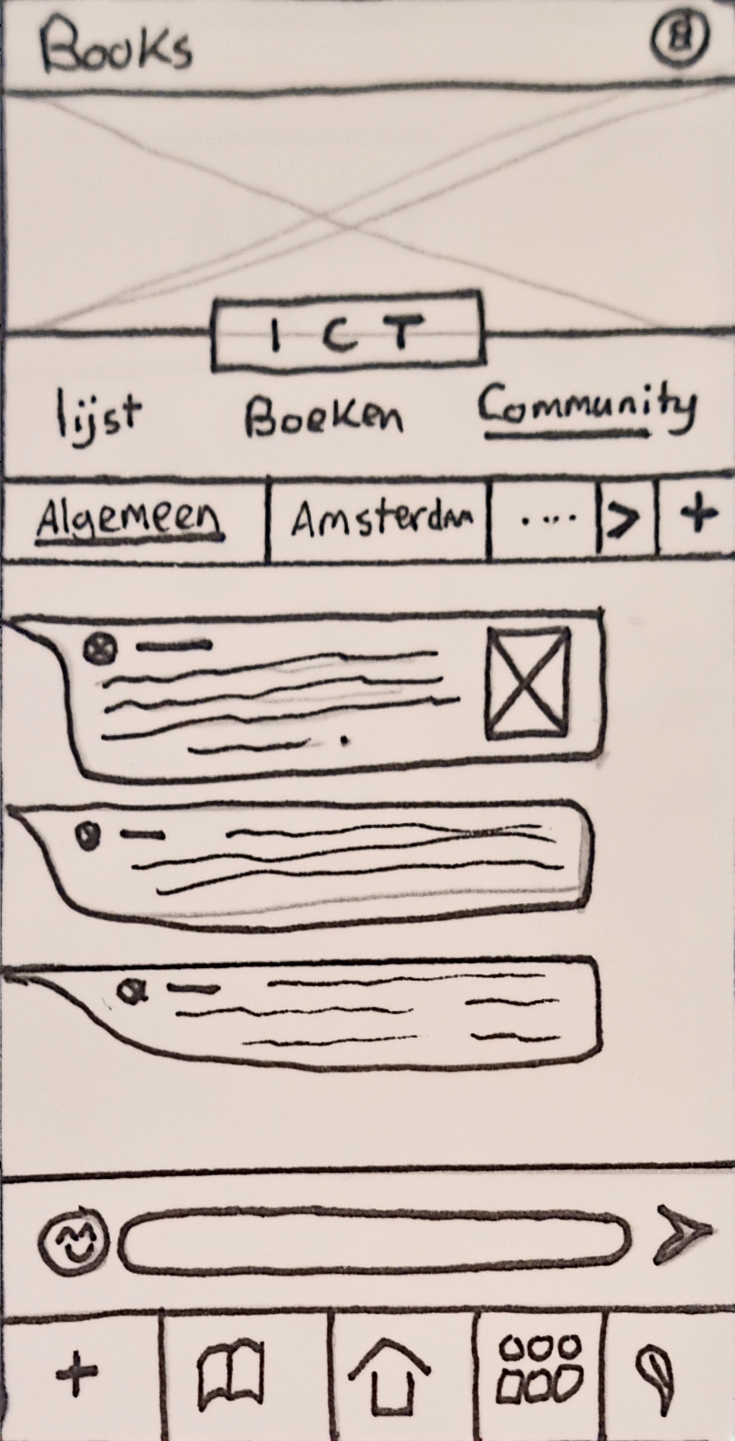 Books
ICT
lijst Boeken Community
Algemeen Amsterdam .... > +
+